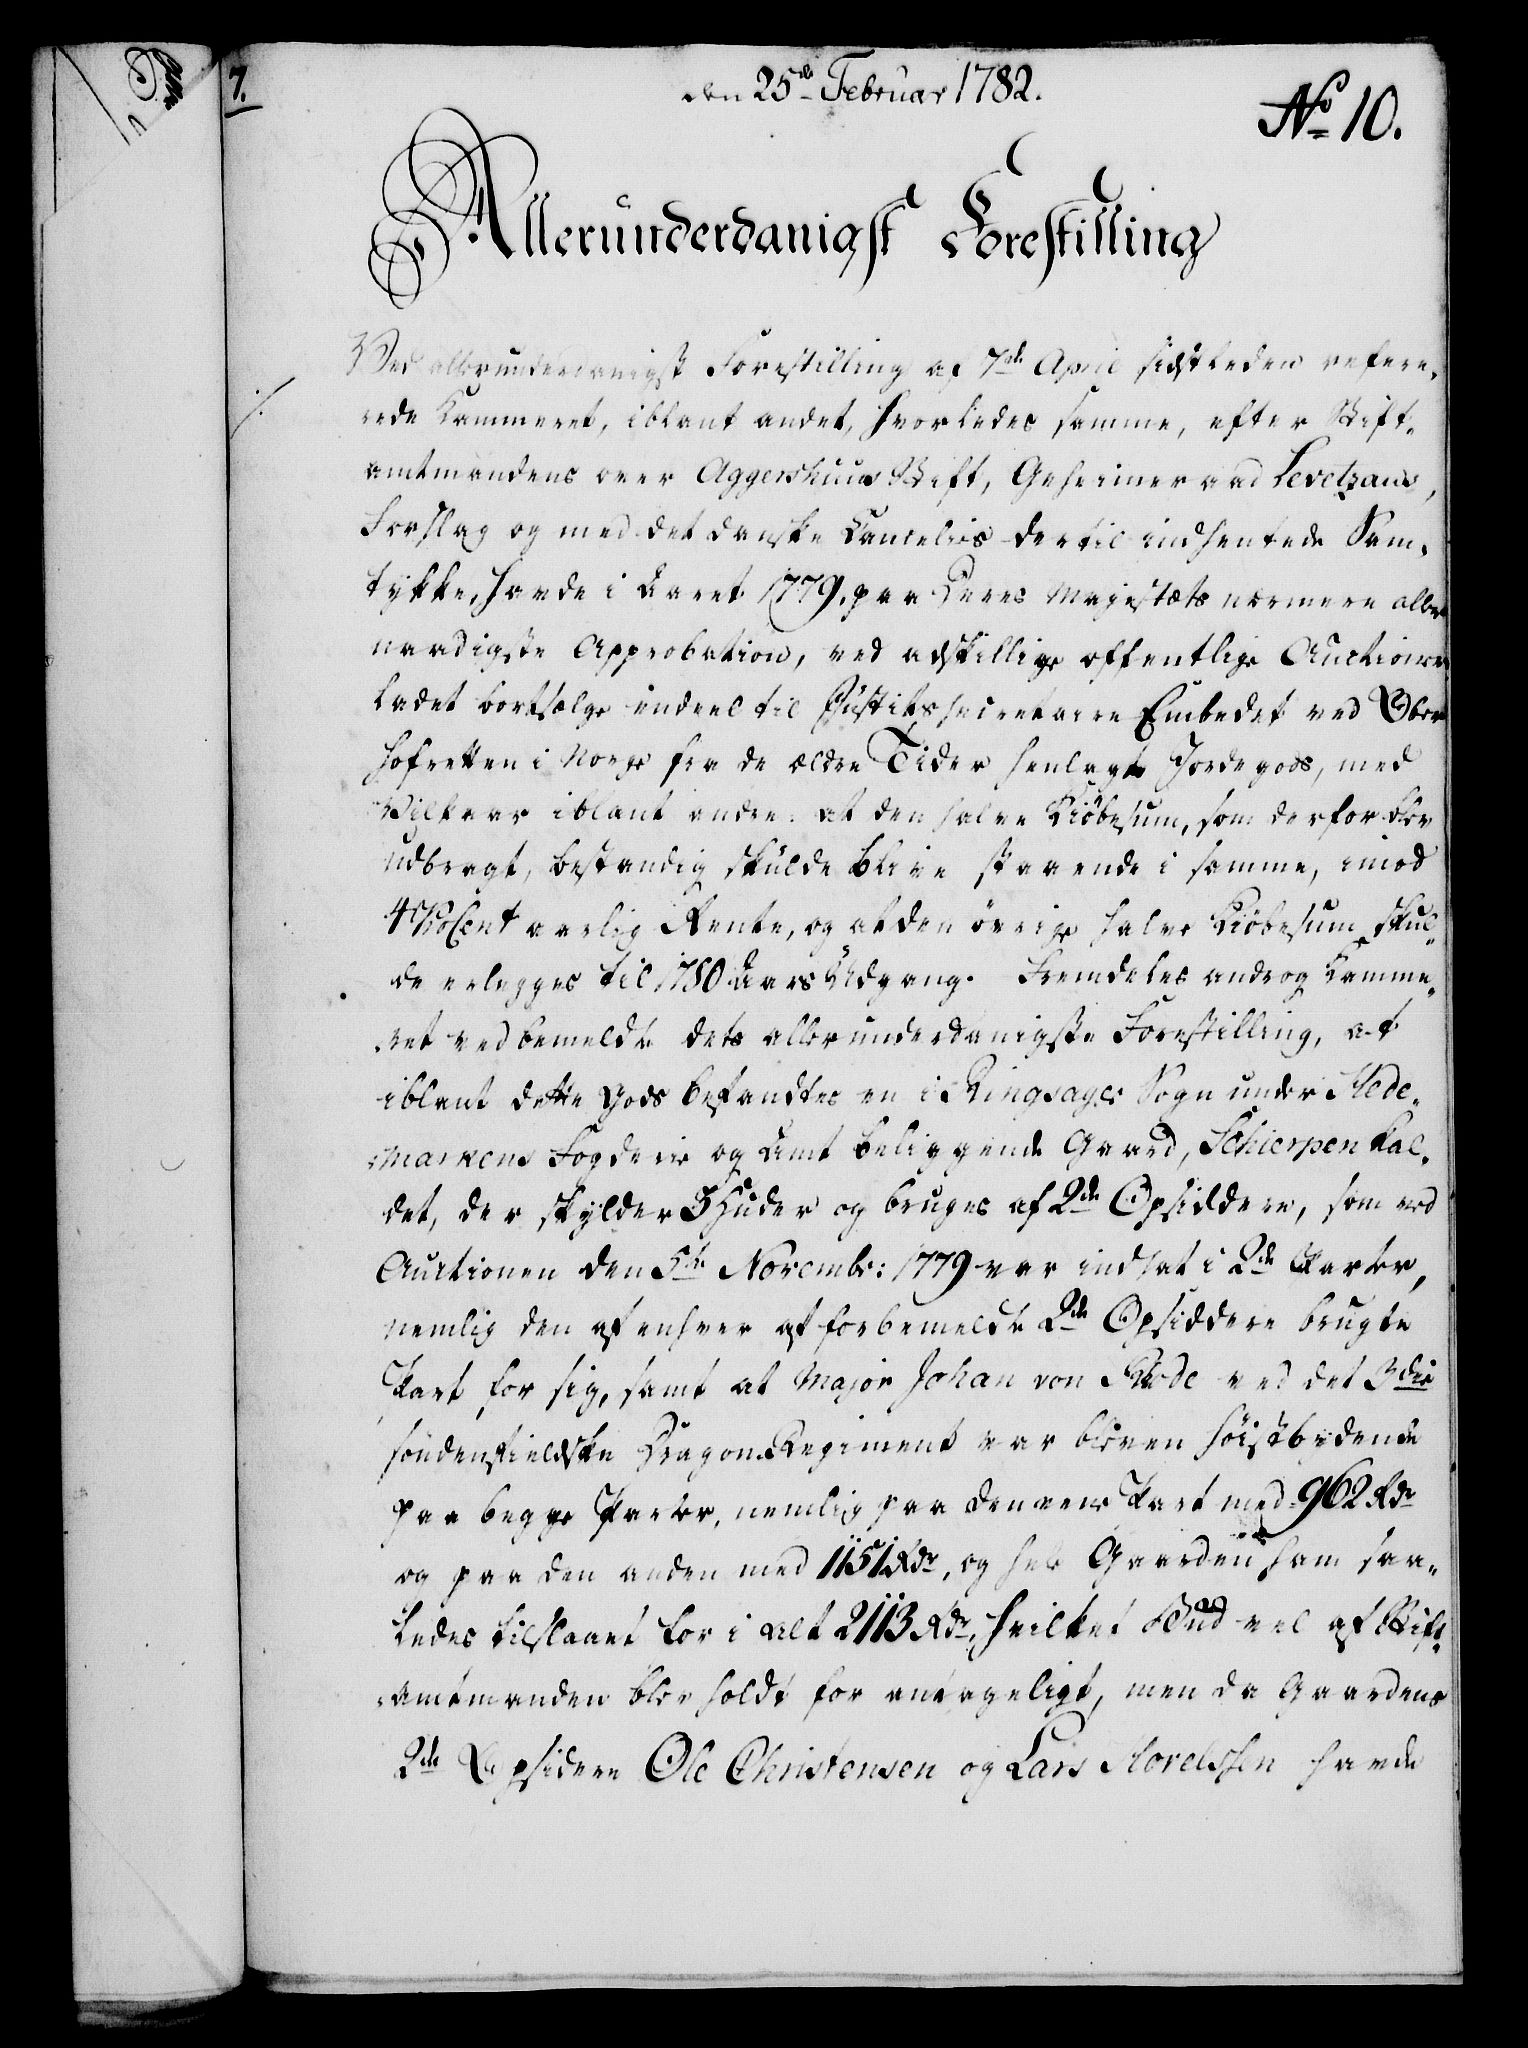 7.
den 25de Februar 1782.
No 10.
Allerunderdanigst Forestilling
Ved allerunderdanigst Forestilling af 7de April sidstleden refere,
rede Kammeret, iblant andet, hvorledes samme, efter Stift,
amtmandens over Aggershuus Stift, Geheimeraad Levetzaus,
Forslag og med det danske Cancelies dertil indhentede Sam,
tykke, havde i Aaret 1779, paa Deres Majestæts nærmere aller
naadigste Approbation, ved adskillige offentlige Auctioner
ladet bortsælge endeel til Justitssecretaire Embedet ved Over
hofretten i Norge fra de ældre Tider henlagte Jordegods, med
Vilkaar iblant andre: at den halve Kiøbesum, som derfor blev
udbragt, bestandig skulde blive staaende i samme, imod
4 ProCent aarlig Rente, og at den øvrige halve Kiøbesum skul,
de erlegges til 1780 Aars Udgang. Fremdeles androg Kamme,
ret ved bemeldte dets allerunderdanigste Forestilling, at
iblant dette Gods befandtes en i Ringsager Sogn under Hede,
markens Fogderie og Amt beliggende Gaard, Schierpen kal,
det, der skylder 3 Huder og bruges af 2de Opsiddere, som ved
Auctionen den 5te Novembr: 1779 var indsat i 2de Parter,
nemlig den af enhver af forbemeldte 2de Opsiddere brugte
Part for sig, samt at Major Johan von Rode ved det 3die
søndenfieldske Dragon Regiment var bleven høistbydende
paa begge Parter, nemlig paa den eene Part med 962 Rdr
og paa den anden med 1151 Rdr, og hele Gaarden ham saa,
ledes tilslaaet for i alt 2113 Rdr, hvilket Bud vel af Stift,
amtmanden blev holdt for antageligt, men da Gaardens
2de Opsiddere Ole Christensen og Lars Hovelssen havde